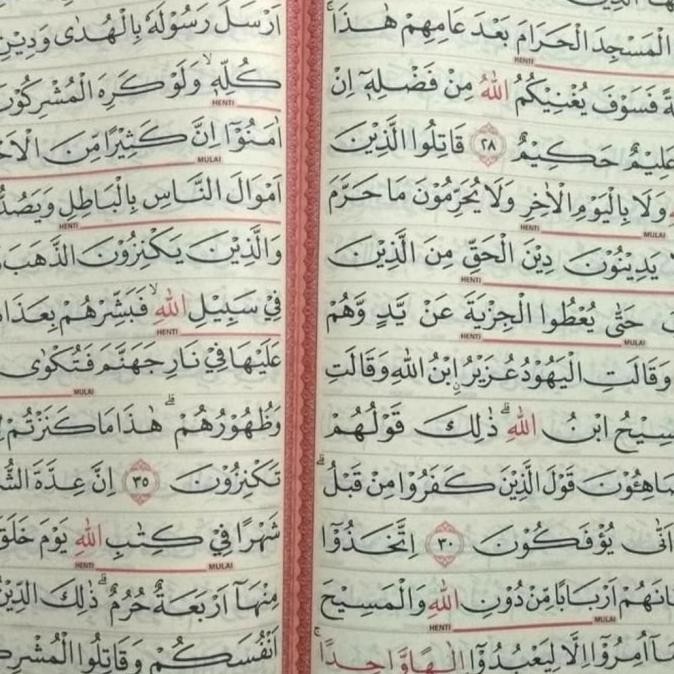 الْمَسْجِدَ الْحَرَامَ بَعْدَ عَامِهِمْ هٰذَاۚ
HENTI
فَسَوْفَ يُغْنِيْكُمُ اللّٰهُ مِنْ فَضْلِهٖٓ اِنْ
عَلِيْمٌ حَكِيْمٌ ٢٨ قَاتِلُوا الَّذِيْنَ
وَلَا بِالْيَوْمِ الْاٰخِرِ وَلَا يُحَرِّمُوْنَ مَا حَرَّمَ
HENTI MULAI
يَدِيْنُوْنَ دِيْنَ الْحَقِّ مِنَ الَّذِيْنَ
HENTI
حَتّٰى يُعْطُوا الْجِزْيَةَ عَنْ يَّدٍ وَّهُمْ
HENTI MULAI
وَقَالَتِ الْيَهُوْدُ عُزَيْرُ ِۨابْنُ اللّٰهِ وَقَالَتِ
ابْنُ اللّٰهِ ۗ ذٰلِكَ قَوْلُهُمْ
قَوْلَ الَّذِيْنَ كَفَرُوْا مِنْ قَبْلُ ۗ
اَنّٰى يُؤْفَكُوْنَ ٣٠ اِتَّخَذُوْٓا
اَرْبَابًا مِّنْ دُوْنِ اللّٰهِ وَالْمَسِيْحَ
HENTI MULAI
اُمِرُوْٓا اِلَّا لِيَعْبُدُوْٓا اِلٰهًا وَّاحِدًاۚ
اَرْسَلَ رَسُوْلَهٗ بِالْهُدٰى وَدِيْنِ
كُلِّهٖۙ وَلَوْ كَرِهَ الْمُشْرِكُوْنَ
HENTI
اٰمَنُوْٓا اِنَّ كَثِيْرًا مِّنَ
MULAI
اَمْوَالَ النَّاسِ بِالْبَاطِلِ
HENTI
وَالَّذِيْنَ يَكْنِزُوْنَ الذَّهَبَ
فِيْ سَبِيْلِ اللّٰهِ ۙ فَبَشِّرْهُمْ
HENTI
عَلَيْهَا فِيْ نَارِ جَهَنَّمَ فَتُكْوٰى
MULAI
وَظُهُوْرُهُمْ ۗ هٰذَا مَا كَنَزْتُمْ
تَكْنِزُوْنَ ٣٥ اِنَّ عِدَّةَ
شَهْرًا فِيْ كِتٰبِ اللّٰهِ يَوْمَ خَلَقَ
HENTI MULAI
مِنْهَآ اَرْبَعَةٌ حُرُمٌ ۗ ذٰلِكَ الدِّيْنُ
اَنْفُسَكُمْ وَقَاتِلُوا